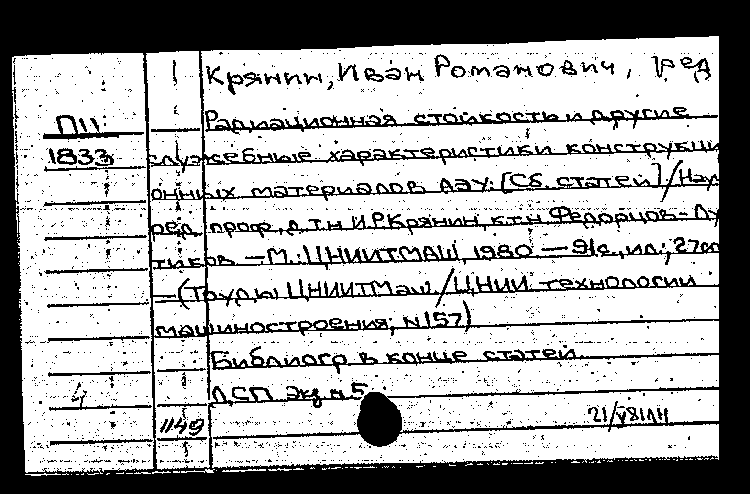 Крянин, Иван Романович, ред
П11
Радиационная стойкость и другие
1833
служебные характеристики конструкци
онных материалов АЭУ. [Сб. статей] / Нау
ред. проф., д.т.н И.Р.Крянин, к.т.н Федорцов-Лу
тиков — М.: ЦНИИТМАШ, 1980 — 91с., ил.; 27см
— (Труды ЦНИИТМаш / ЦНИИ технологии
машиностроения; N157)
Библиогр. в конце статей
4
ДСП Экз N5
1149